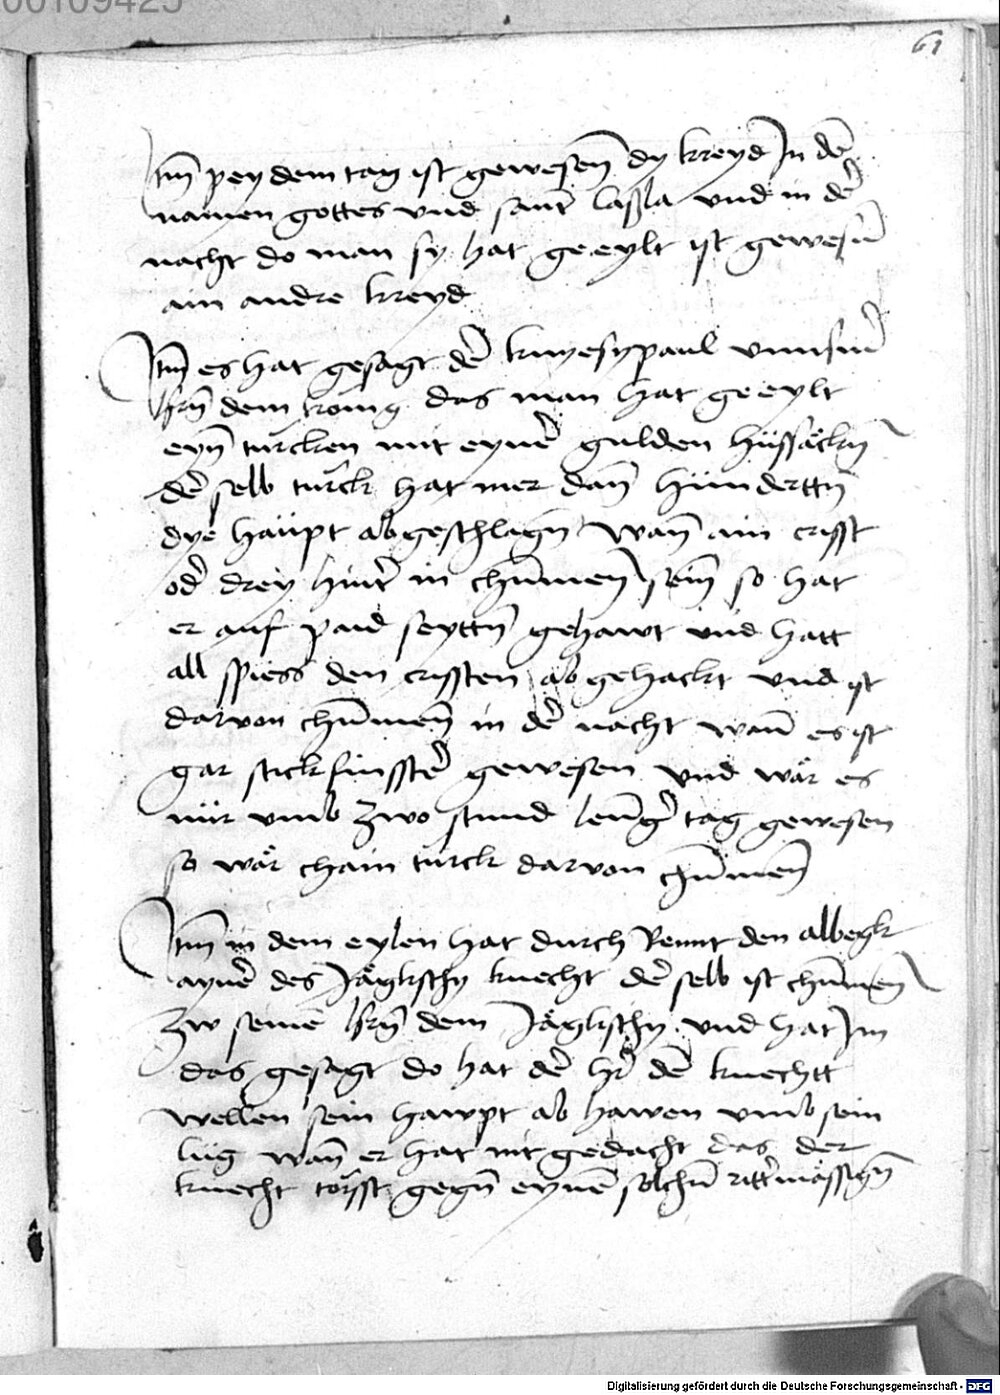 00109425
61
Itm̄ pey dem tag ist gewesen̄ dy kreyd In de͂
namen gottes vnd sant͛ laßla vnd in de͂
nacht do man sy hat geeylt ist gewesn̄
ain andre kreyd
Itm̄ es hat gesagt de͂ knyesy paul vnns͛m
hrn̄ dem konig das man hat geeylt
eyn̄ turcken mit eyne͂ gulden hüssäckn̄
de͂ selb türck hat mer dan̄ hündertn̄
dye häupt abgeschlagn̄ wan̄ ain crisst
od͛ drey hint͛ in chūmen sein̄ so hat
er auf paid seyttn̄ gehawt vnd hatt
all spiess den crissten ab gehackt vnd ist
darvon chūmen̄ in de͂ nacht wan̄ es ist
gar stickfinsste͂ gewesen vnd wär es
nür vmb zwo stund leng͛ tag gewesen
so wär chain türck darvon chūmen̄
Itm̄ in dem eylen hat durch Rennt den albegk
ayne͂ des Jägkschy knecht de͂ selb ist chūmen
zw seinē hrn̄ dem Jägkschy vnd hat Im
das gesagt do hat de͂ hr͛ dē knechtt
wellen sein hawpt ab hawen vmb sein
lüg wan̄ er hat nit gedacht das der
knecht törsst gegn̄ eynē solchn̄ ritt͛mässign̄
Digitalisierung gefördert durch die Deutsche Forschungsgemeinschaft - DFG